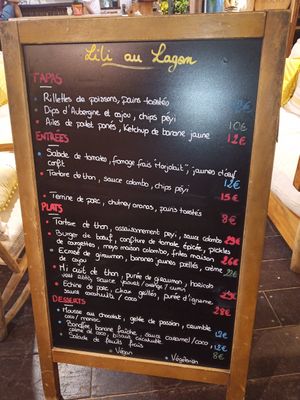 Lili au Lagon
TAPAS
Rillettes de poissons, pains toastés
Dips d'Aubergine et cajou, chips péyi 10€
Ailes de poulet panés, Ketchup de banane jaune 12€
ENTRÉES
Salade de tomates, fromage frais, jaunes d'œuf
confit 12€
Tartare de thon, sauce colombo, chips péyi 15€
Terrine de porc, chutney ananas, pains toastés 8€
PLATS
Tartare de thon, assaisonnement péyi, sauce colombo
Burger de bœuf, confiture de tomate épicée, pickles
de courgettes, mayo maison colombo, frites maison 26€
Ecrasé de giraumon, bananes jaunes poêlées, crème
de cajou
Mi cuit de thon, purée de giraumon, haricots
verts
Echine de porc, chou grillés, purée d'igname,
sauce cacahuète / coco 28€
DESSERTS
Mousse au chocolat, gelée de passion, crumble
coco / manioc 12€
banane fraîche, sauce caramel/coco
crème de coco, biscuit cacahuète 12€
Salade de fruits frais 8€
Végan Végétarien